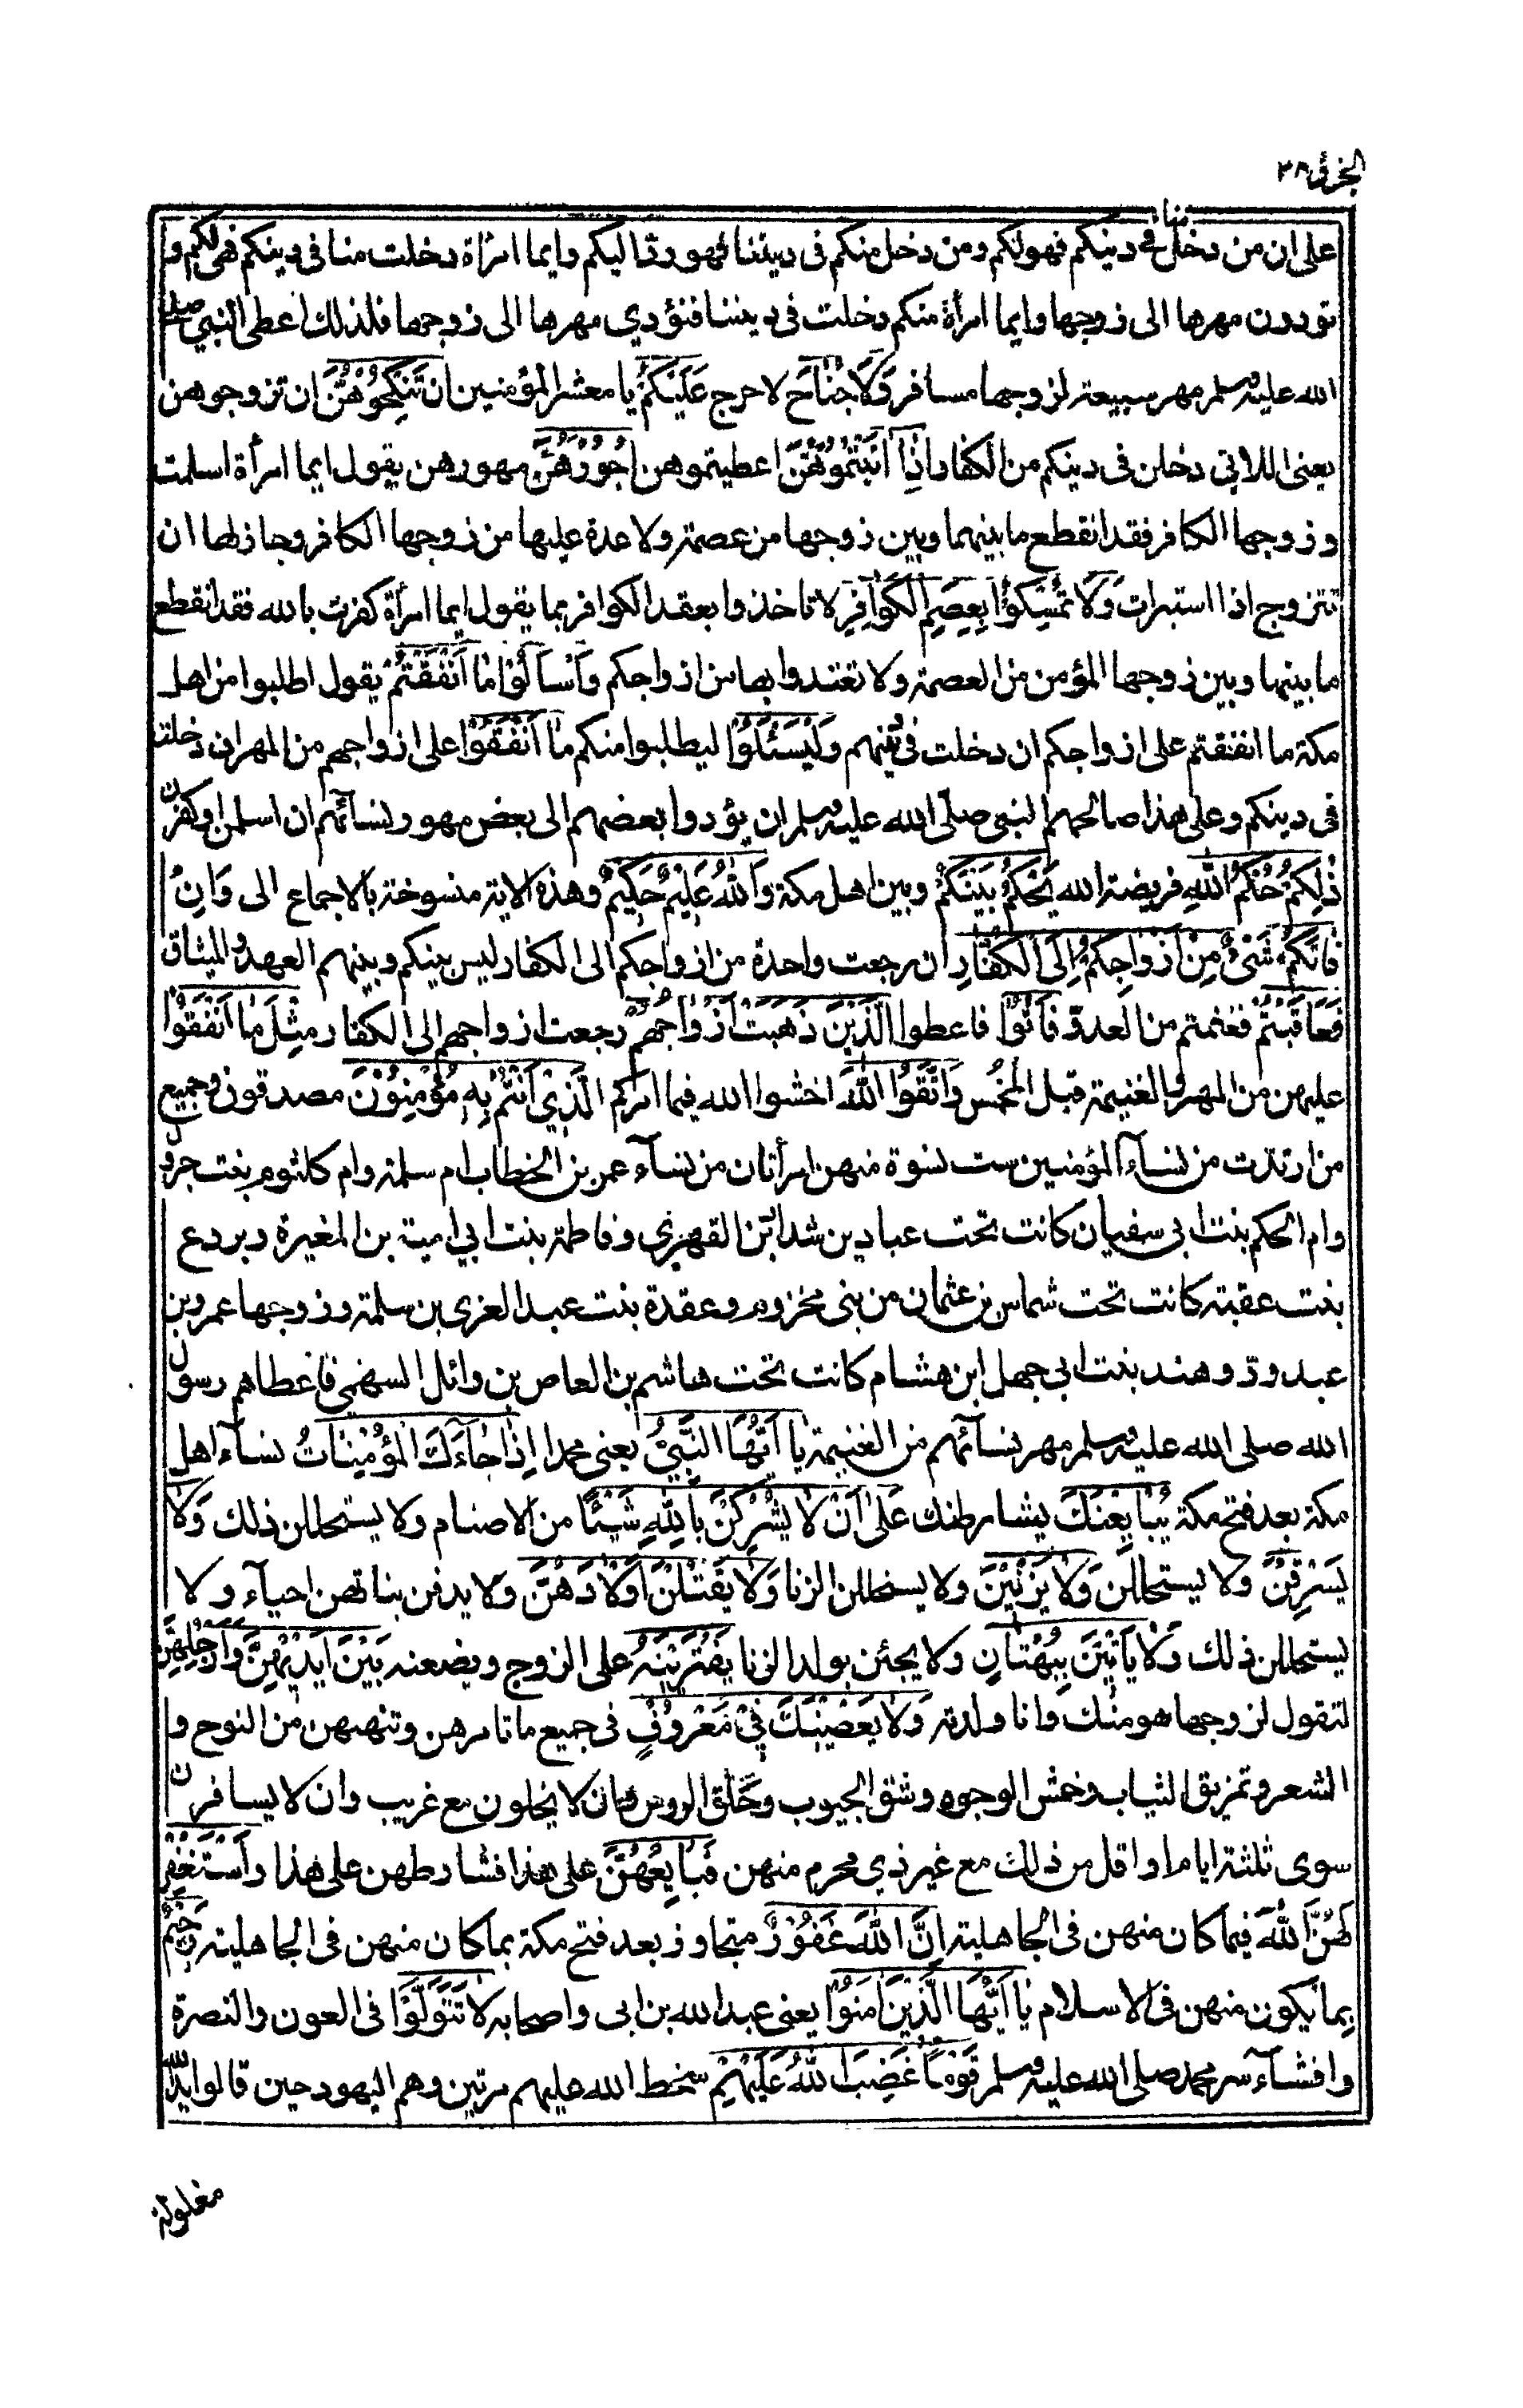 الجزئ ٢٨
على ان من دخل منا فى دينكم فهو لكم ومن دخل منكم فى ديننا فهو رد اليكم وايما امرأة دخلت منا فى دينكم فهى لكم و
تودون مهرها الى زوجها وايما امرأة منكم دخلت فى ديننا فنؤدي مهرها الى زوجها فلذلك اعطى النبي صلى
الله عليه وسلم مهر سبيعة لزوجها مسافر وَلَا جُنَاحَ لا حرج عَلَيْكُمْ يا معشر المؤمنين اَنْ تَنْكِحُوْهُنَّ ان تزوجوهن
يعنى اللاتي دخلن فى دينكم من الكفار اِذَا اٰتَيْتُمُوْهُنَّ اعطيتموهن اُجُوْرَهُنَّ مهورهن يقول ايما امرأة اسلمت
وزوجها الكافر فقد انقطع ما بينهما وبين زوجها من عصمة ولا عدة عليها من زوجها الكافر وجاز لها ان
تتزوج اذا استبرات وَلَا تُمْسِكُوْا بِعِصَمِ الْكَوَافِرِ لا تاخذوا بعقد الكوافر بما يقول ايما امرأة كفرت بالله فقد انقطع
ما بينها وبين زوجها المؤمن من العصمة ولا تعتدوا بها من ازواجكم وَاسْأَلُوْا مَا اَنْفَقْتُمْ يقول اطلبوا من اهل
مكة ما انفقتم على ازواجكم ان دخلت فى دينهم وَلْيَسْئَلُوْا ليطلبوا منكم مَا اَنْفَقُوْا على ازواجهم من المهر ان دخلت
فى دينكم وعلى هذا صالحهم النبى صلى الله عليه وسلم ان يؤدوا بعضهم الى بعض مهور نسائهم ان اسلمن او كفرن
ذٰلِكُمْ حُكْمُ اللهِ فريضة الله يَحْكُمُ بَيْنَكُمْ وبين اهل مكة وَاللهُ عَلِيْمٌ حَكِيْمٌ وهذه الاية منسوخة بالاجماع الى وَاِنْ
فَاتَكُمْ شَىْءٌ مِنْ اَزْوَاجِكُمْ اِلَى الْكُفَّارِ ان رجعت واحدة من ازواجكم الى الكفار ليس بينكم وبينهم العهد والميثاق
فَعَاقَبْتُمْ فغنمتم من العدو فَاٰتُوْا فاعطوا الَّذِيْنَ ذَهَبَتْ اَزْوَاجُهُمْ رجعت ازواجهم الى الكفار مِثْلَ مَا اَنْفَقُوْا
عليهن من المهر والغنيمة قبل الخمس وَاتَّقُوا اللهَ اخشوا الله فيما امركم الَّذِيْ اَنْتُمْ بِهٖ مُؤْمِنُوْنَ مصدقون وجميع
من ارتدت من نساء المؤمنين ست نسوة منهن امرأتان من نساء عمر بن الخطاب ام سلمة وام كلثوم بنت جرول
وام الحكم بنت ابى سفيان كانت تحت عباد بن شداد بن القهري وفاطمة بنت ابي امية بن المغيرة وبردع
بنت عقبة كانت تحت شماس بن عثمان من بنى مخزوم وعقدة بنت عبد العزى بن سلمة وزوجها عمرو بن
عبد ود وهند بنت ابى جهل ابن هشام كانت تحت هاشم بن العاص بن وائل السهمى فاعطاهم رسول
الله صلى الله عليه وسلم مهر نسائهم من الغنيمة يَا اَيُّهَا النَّبِيُّ يعنى محمدا اِذَا جَاءَكَ الْمُؤْمِنَاتُ نساء اهل
مكة بعد فتح مكة يُبَايِعْنَكَ يشارطنك عَلٰى اَنْ لَا يُشْرِكْنَ بِاللهِ شَيْئًا من الاصنام ولا يستحللن ذلك وَلَا
يَسْرِقْنَ ولا يستحللن وَلَا يَزْنِيْنَ ولا يستحللن الزنا وَلَا يَقْتُلْنَ اَوْلَادَهُنَّ ولا يدفن بناتهن احياء ولا
يستحللن ذلك وَلَا يَاْتِيْنَ بِبُهْتَانٍ ولا يجئن بولد الزنا يَفْتَرِيْنَهٗ على الزوج ويضعنه بَيْنَ اَيْدِيْهِنَّ وَاَرْجُلِهِنَّ
لتقول لزوجها هو منك وانا ولدته وَلَا يَعْصِيْنَكَ فِيْ مَعْرُوْفٍ فى جميع ما تامرهن وتنههن من النوح و
الشعر وتمزيق الثياب وخمش الوجوه وشق الجيوب وحلق الروس وان لا يخلون مع غريب وان لا يسافرن
سوى ثلثة ايام او اقل من ذلك مع غير ذي محرم منهن فَبَايِعْهُنَّ على هذا فشارطهن على هذا وَاسْتَغْفِرْ
لَهُنَّ اللهَ فيما كان منهن فى الجاهلية اِنَّ اللهَ غَفُوْرٌ متجاوز بعد فتح مكة بما كان منهن فى الجاهلية رَحِيْمٌ
بما يكون منهن فى الاسلام يَا اَيُّهَا الَّذِيْنَ اٰمَنُوْا يعنى عبد الله بن ابى واصحابه لَا تَتَوَلَّوْا فى العون والنصرة
وافشاء سر محمد صلى الله عليه وسلم قَوْمًا غَضِبَ اللهُ عَلَيْهِمْ سخط الله عليهم مرتين وهم اليهود حين قالوا يد الله
مغلولة